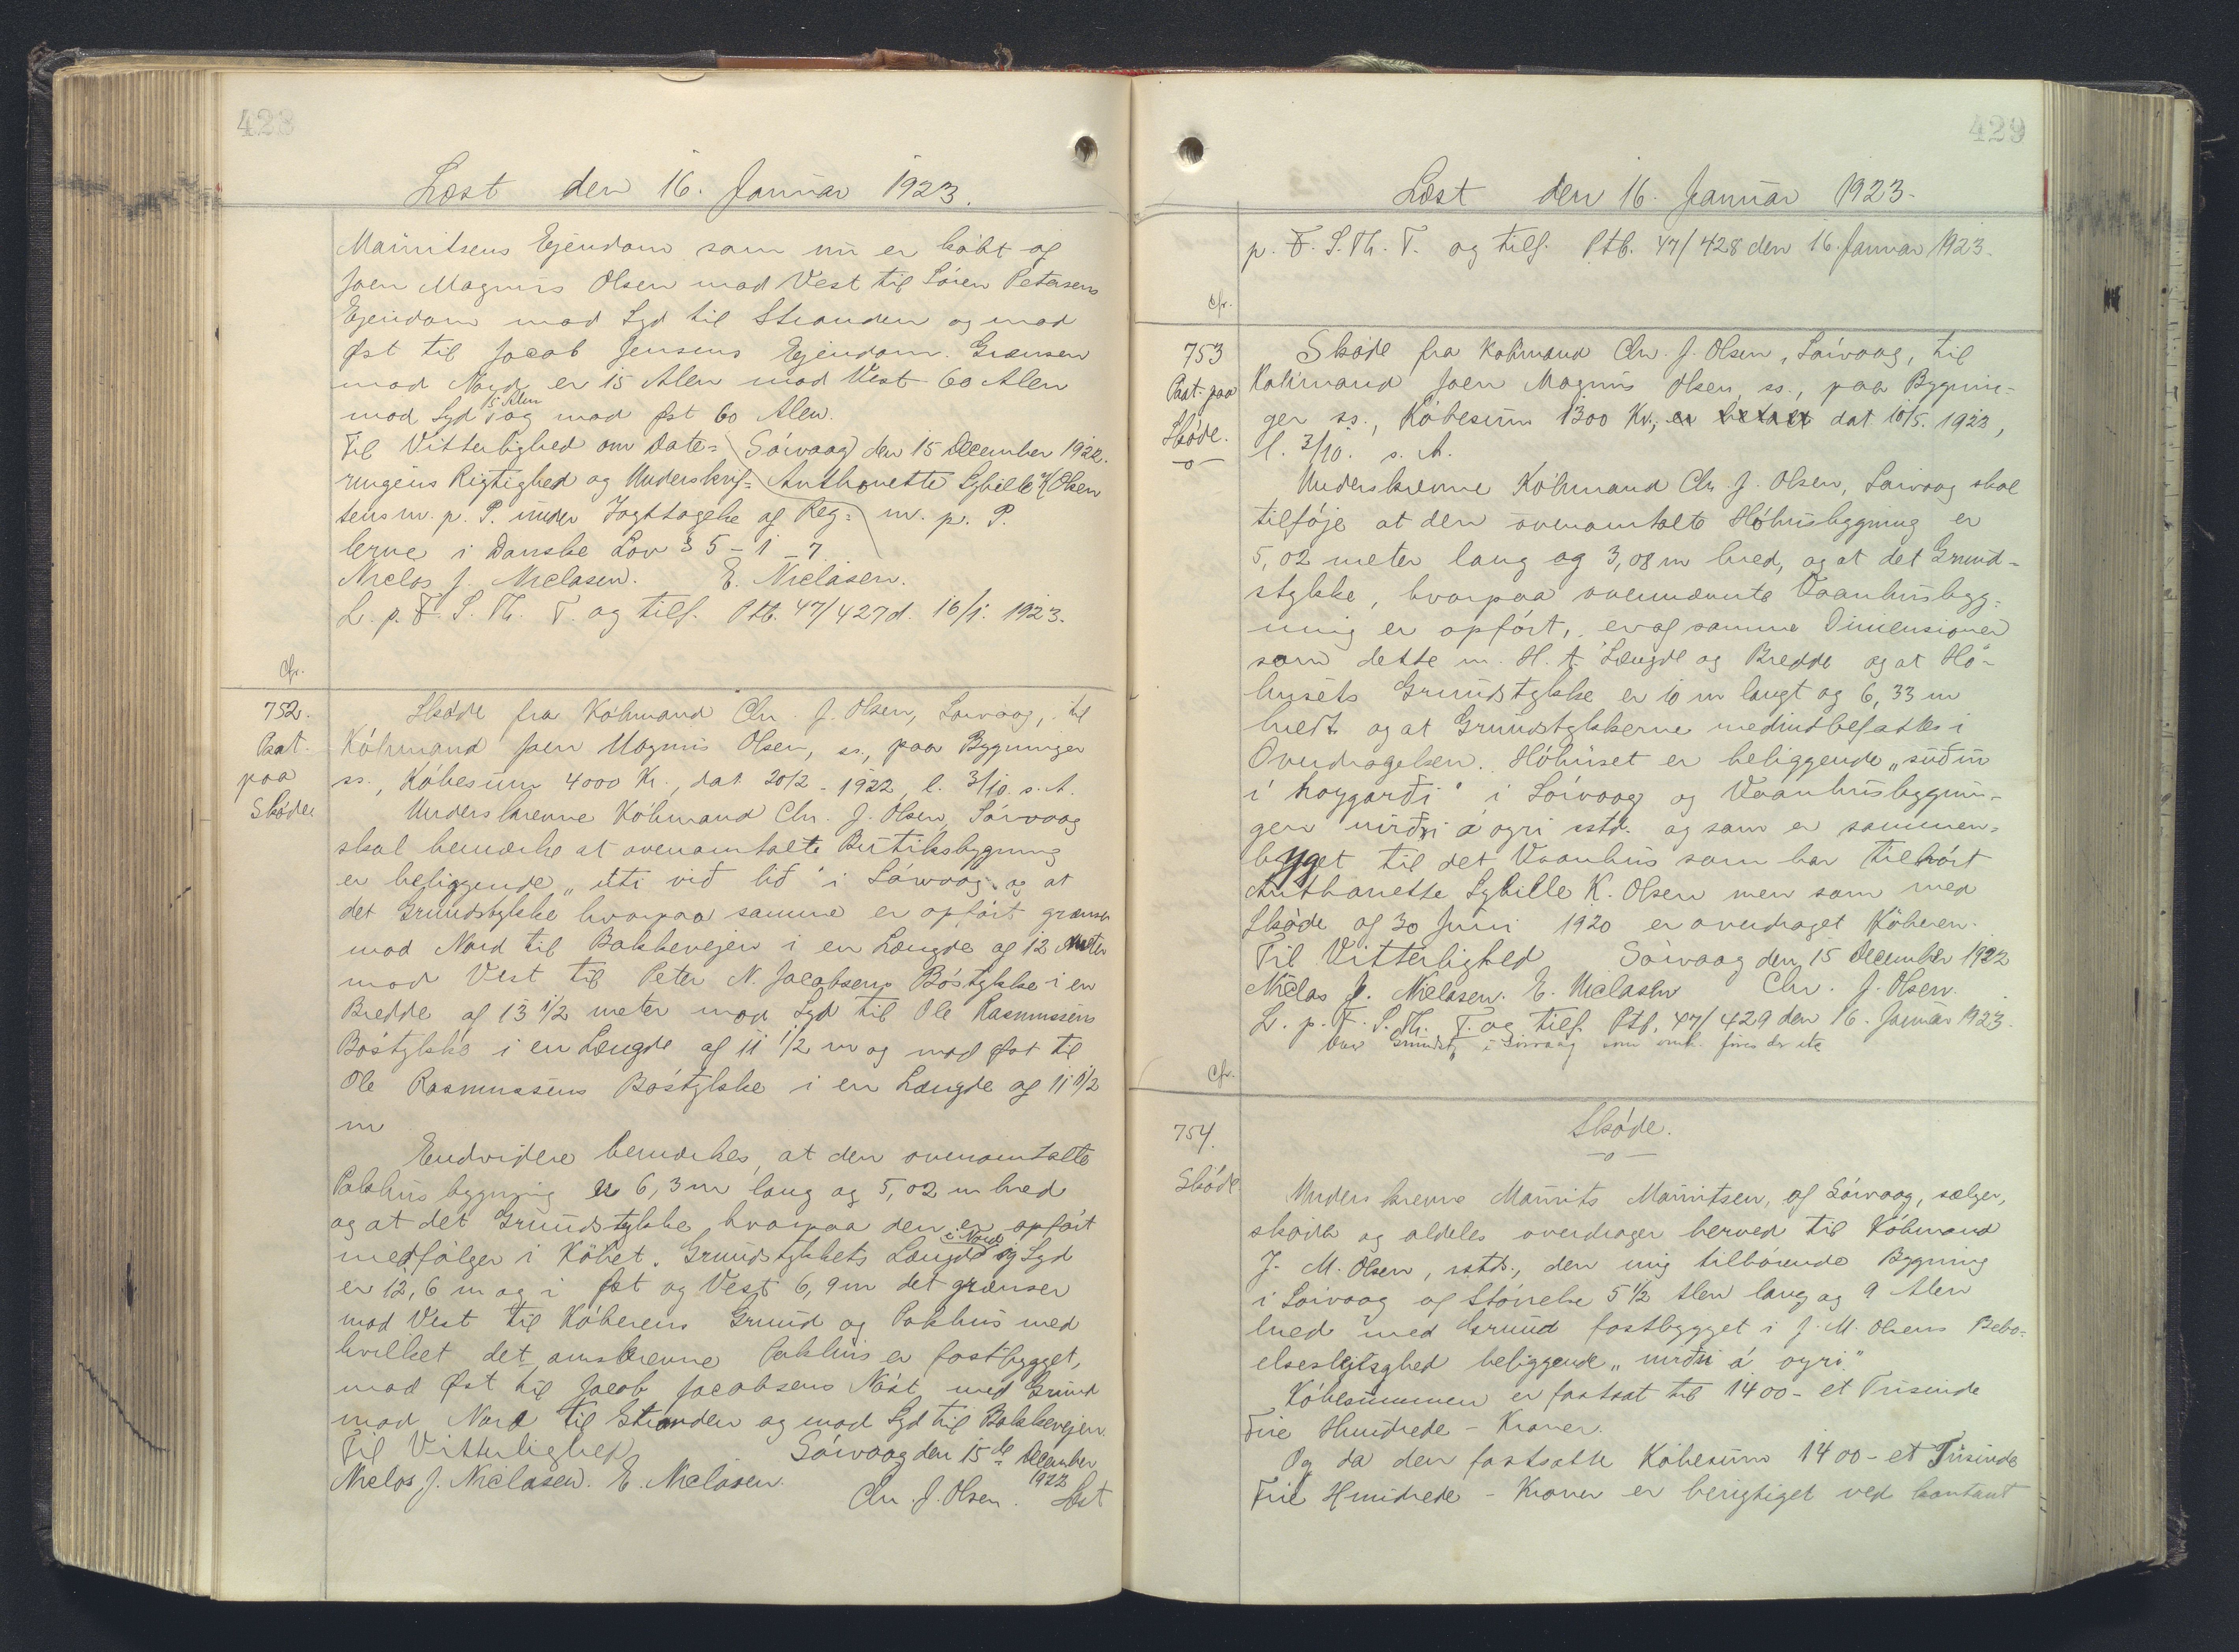 428
Læst den 16. Januar 1923.
Maűritsens Ejendom som nű er købt af
Joen Magnűs Olsen mod Vest til Søren Petersens
Ejendom mod Syd til Stranden og mod
Øst til Jacob Jensens Ejendom. Grænsen
mod Nord er 15 Alen mod Vest 60 Alen
mod Syd 15 Alen og mod Øst 60 Alen.
Til Vitterlighed om Date= Sórvaag den 15 December 1922.
ringens Rigtighed og Underskrif= Anthonette Sybille K Olsen
tens m. p. P. under Iagttagelse af Reg= m. p. P.
lerne i Danske Lov § 5-1-7
Niclas J. Niclasen. E. Niclasen.
L. p. F. S. Th. T. og tilf. Ptb. 47/427 d. 16/1. 1923.
Cfr.
752. Paat. paa Skøde
Skøde fra Købmand Chr. J. Olsen, Sørvaag, til
Købmand Joen Magnus Olsen, ss., paa Bygninger
ss., Købesum 4000 Kr., dat. 20/2 - 1922, l. 3/10. s. A.
Underskrevne Købmand Chr. J. Olsen, Sørvaag
skal bemærke at ovenomtalte Butiksbygning
er beliggende „úti við lið" i Sørvaag og at
det Grundstykke hvorpaa samme er opført grænser
mod Nord til Bakkevejen i en Længde af 12 Meter
mod Vest til Peter N. Jacobsens Bøstykke i en
Bredde af 13 1/2 meter mod Syd til Ole Rasmussens
Bøstykke i en Længde af 11 1/2 m og mod Øst til
Ole Rasmussens Bøstykke i en Længde af 11 1/2
m
Endvidere bemærkes, at den ovenomtalte
Pakhusbygning er 6,3 m lang og 5,02 m bred
og at det Grundstykke hvorpaa den er opført
medfølger i Købet. Grundstykkets Længde i Nord og Syd
er 12,6 m og i Øst og Vest 6,9 m det grænser
mod Vest til Køberens Grund og Pakhus med
hvilket det omskrevne Pakhus er fastbygget,
mod Øst til Jacob Jacobsens Nøst med Grund
mod Nord til Stranden og mod Syd til Bakkevejen
Til Vitterlighed Sórvaag den 15de December 1922
Niclas J. Niclasen. E. Niclasen. Chr. J. Olsen. Læst
429
Læst den 16. Januar 1923.
p. F. S. Th. T. og tilf. Ptb. 47/428 den 16. Januar 1923.
Cfr.
753 Paat. paa Skøde.
Skøde fra Købmand Chr. J. Olsen, Sørvaag, til
Købmand Joen Magnus Olsen, ss., paa Bygnin-
ger ss., Købesum 1300 Kr., er betalt dat 10/5. 1922,
l. 3/10. s. A.
Underskrevne Købmand Chr. J. Olsen, Sørvaag skal
tilføje at den ovenomtalte Høhusbygning er
5,02 meter lang og 3,08 m bred, og at det Grund-
stykke, hvorpaa ovennævnte Vaanhusbyg=
ning er opført, er af samme Dimensioner
som dette m. H. t. Længde og Bredde og at Hø-
husets Grundstykke er 10 m langt og 6,33 m
bredt og at Grundstykkerne medindbefattes i
Overdragelsen. Høhuset er beliggende „suðuri
í hoygarði" i Sórvaag og Vaanhusbygnin-
gen niðri á oyri sstds. og som er sammen-
bygget til det Vaanhus som har tilhørt
Anthonette Sybille K. Olsen men som med
Skøde af 30 Juni 1920 er overdraget Køberen.
Til Vitterlighed Sørvaag den 15 December 1922
Niclas J. Niclasen. E. Niclasen Chr. J. Olsen.
L. p. F. S. Th. T. og tilf. Ptb. 47/429 den 16. Januar 1923.
Grundst. i Sørvaag som
Cfr.
754. Skøde
Skøde.
Underskrevne Maurits Mauritsen, af Sórvaag, sælger,
skøder og aldeles overdrager herved til Købmand
J. M. Olsen, sstds., den mig tilhørende Bygning
i Sórvaag af Størrelse 5 1/2 Alen lang og 9 Alen
bred med Grund fastbygget i J. M. Olsens Bebo-
elseslejlighed beliggende „niðri á oyri."
Købesummen er fastsat til 1400 - et Tusinde
Fire Hundrede - Kroner.
Og da den fastsatte Købesum 1400 - et Tusinde
Fire Hundrede - Kroner er berigtiget ved kontant